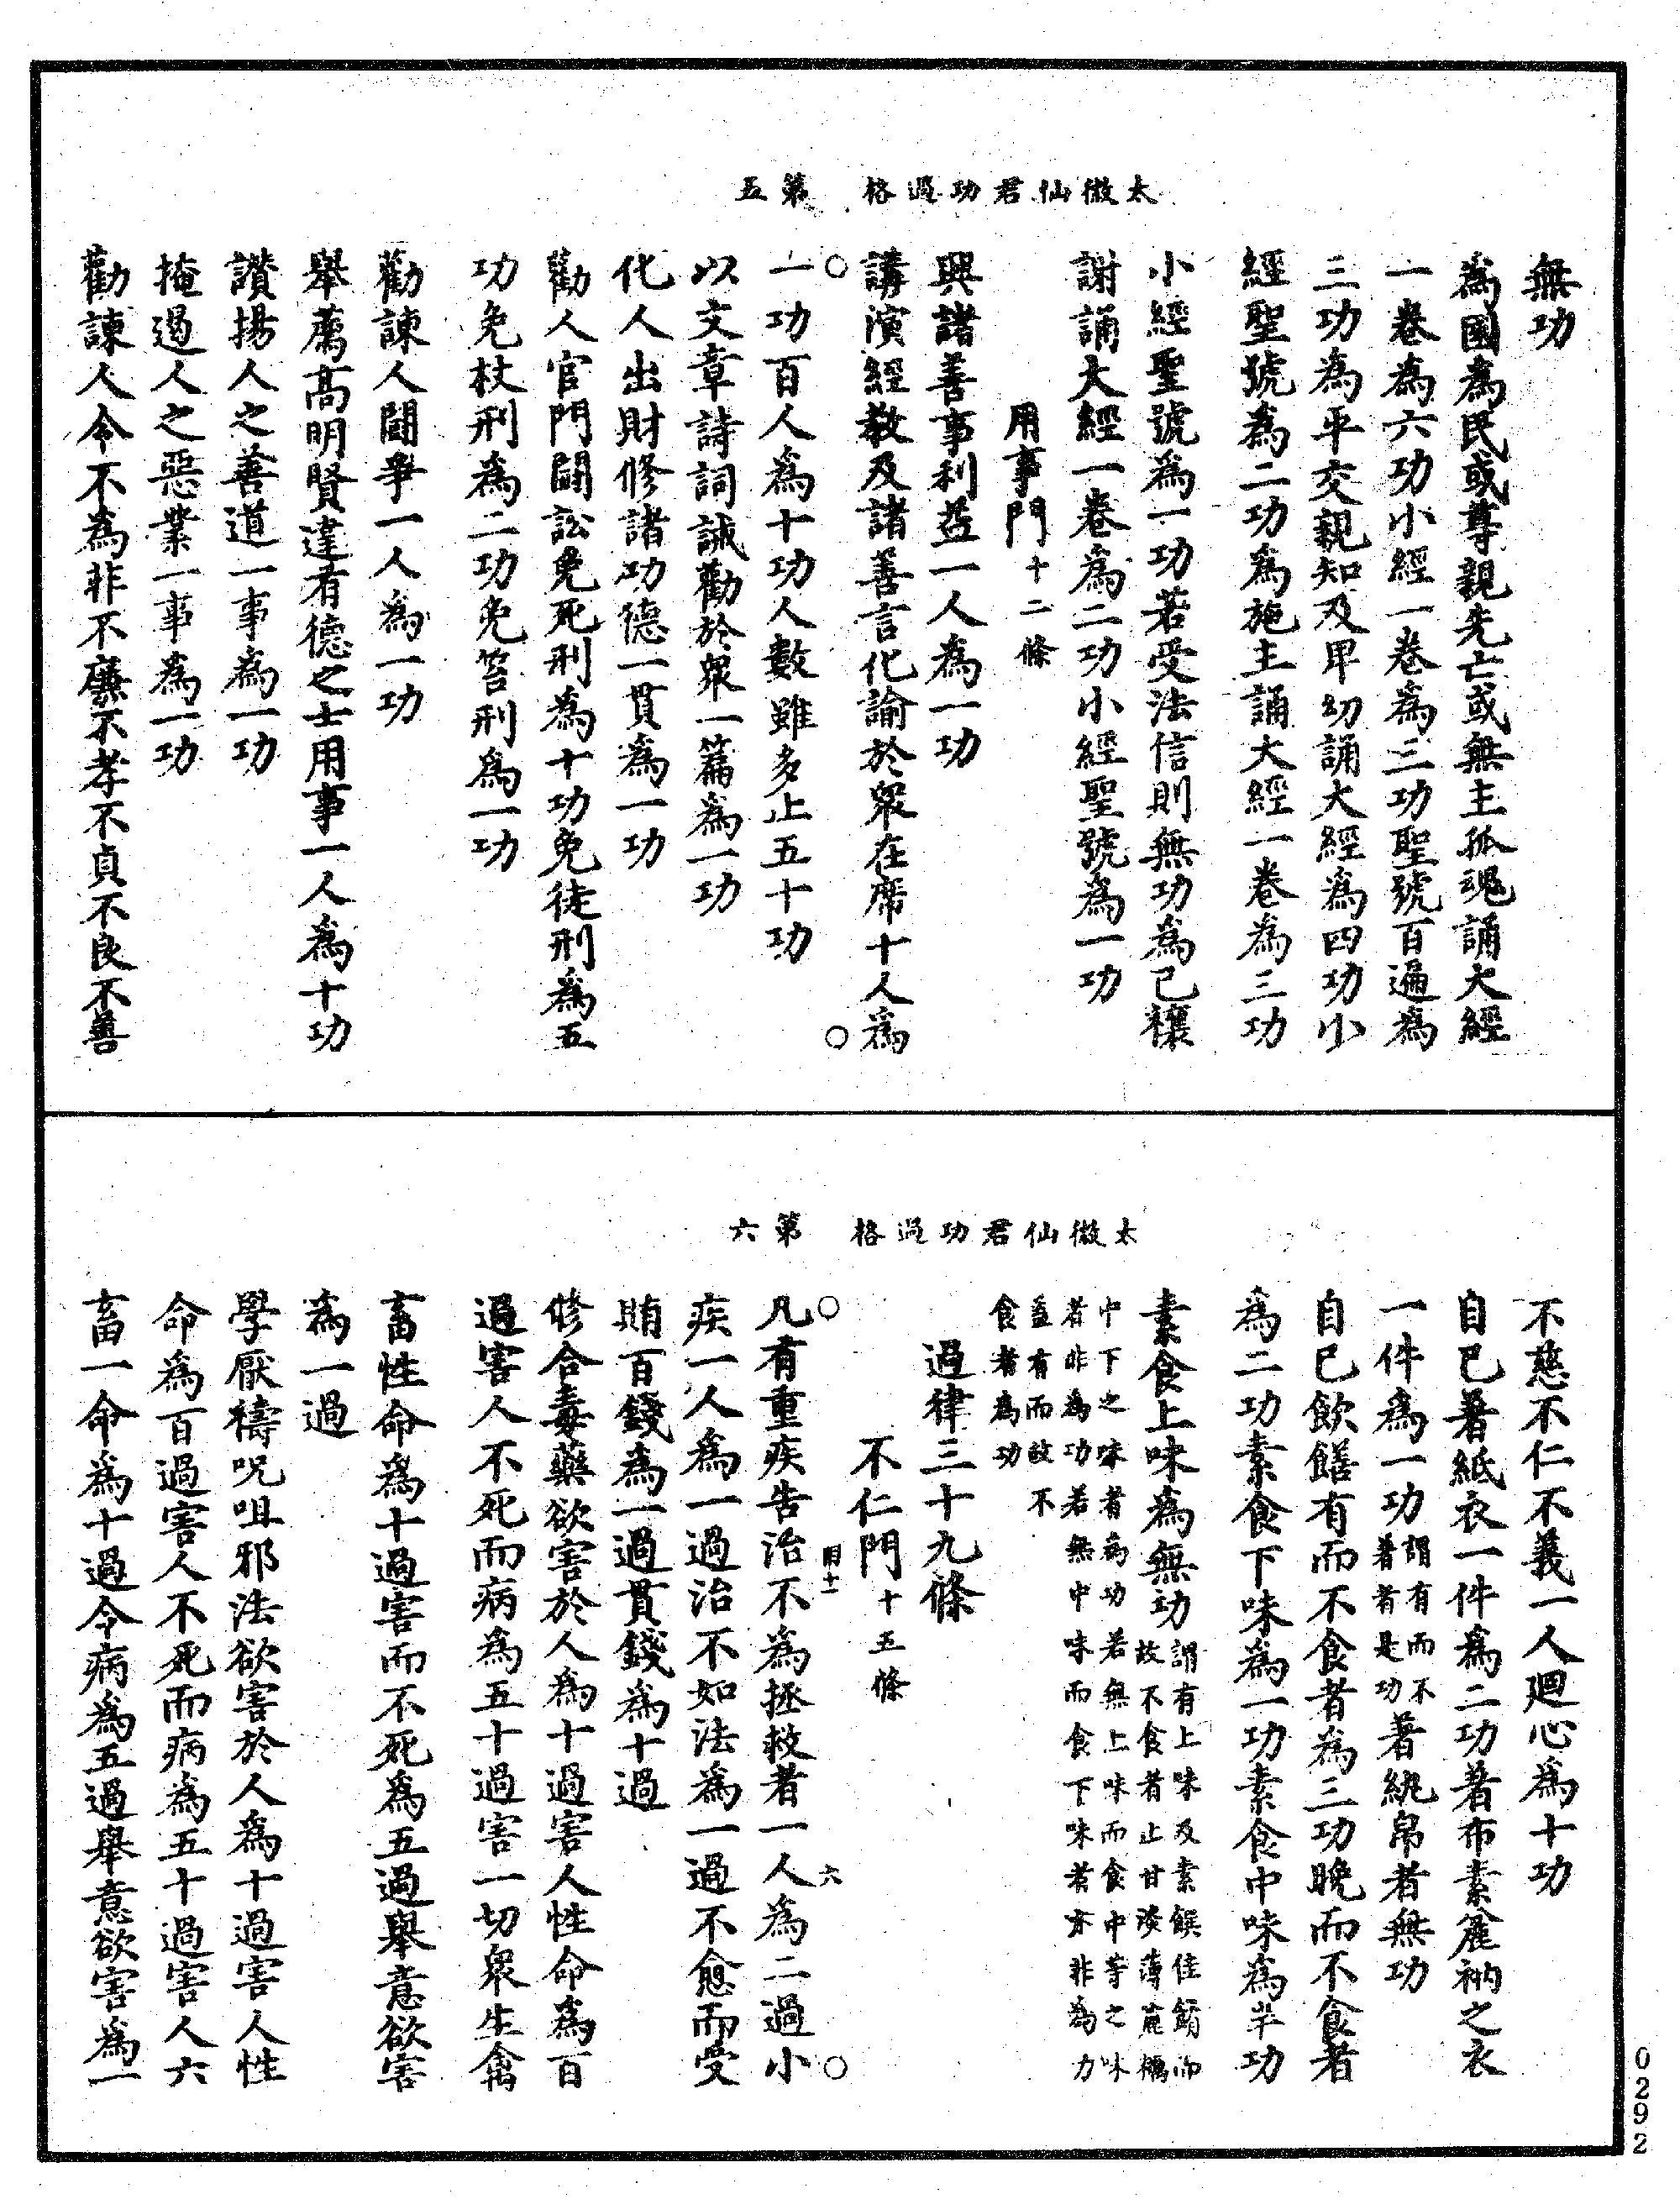 太微仙君功過格　第五
無功
為國為民或尊親先亡或無主孤魂誦大經
一卷為六功小經一卷為三功聖號百遍為
三功為平交親知及卑幼誦大經為四功小
經聖號為二功為施主誦大經一卷為三功
小經聖號為一功若受法信則無功為己禳
謝誦大經一卷為二功小經聖號為一功
用事門十二條
興諸善事利益一人為一功
講演經教及諸善言化諭於衆在席十人為
○　○
一功百人為十功人數雖多止五十功
以文章詩詞誡勸於衆一篇為一功
化人出財修諸功德一貫為一功
勸人官門鬭訟免死刑為十功免徒刑為五
功免杖刑為二功免笞刑為一功
勸諫人鬭爭一人為一功
舉薦高明賢達有德之士用事一人為十功
讃揚人之善道一事為一功
掩遏人之惡業一事為一功
勸諫人令不為非不廉不孝不貞不良不善
太微仙君功過格　第六
不慈不仁不義一人廻心為十功
自己著紙衣一件為二功著布素麄衲之衣
一件為一功謂有而不著者是功著絁帛者無功
自己飲饍有而不食者為三功晚而不食者
為二功素食下味為一功素食中味為半功
素食上味為無功謂有上味及素饌佳餚而
故不食者止甘淡薄麄糲
中下之味者為功若無上味而食中等之味
者非為功若無中味而食下味者亦非為力
益有而故不
食者為功
過律三十九條
不仁門十五條
○　六　○
凡有重疾告治不為拯救者一人為二過小
疾一人為一過治不如法為一過不愈而受
賄百錢為一過貫錢為十過
修合毒藥欲害於人為十過害人性命為百
過害人不死而病為五十過害一切衆生禽
畜性命為十過害而不死為五過舉意欲害
為一過
學厭禱呪咀邪法欲害於人為十過害人性
命為百過害人不死而病為五十過害人六
畜一命為十過令病為五過舉意欲害為一
0292